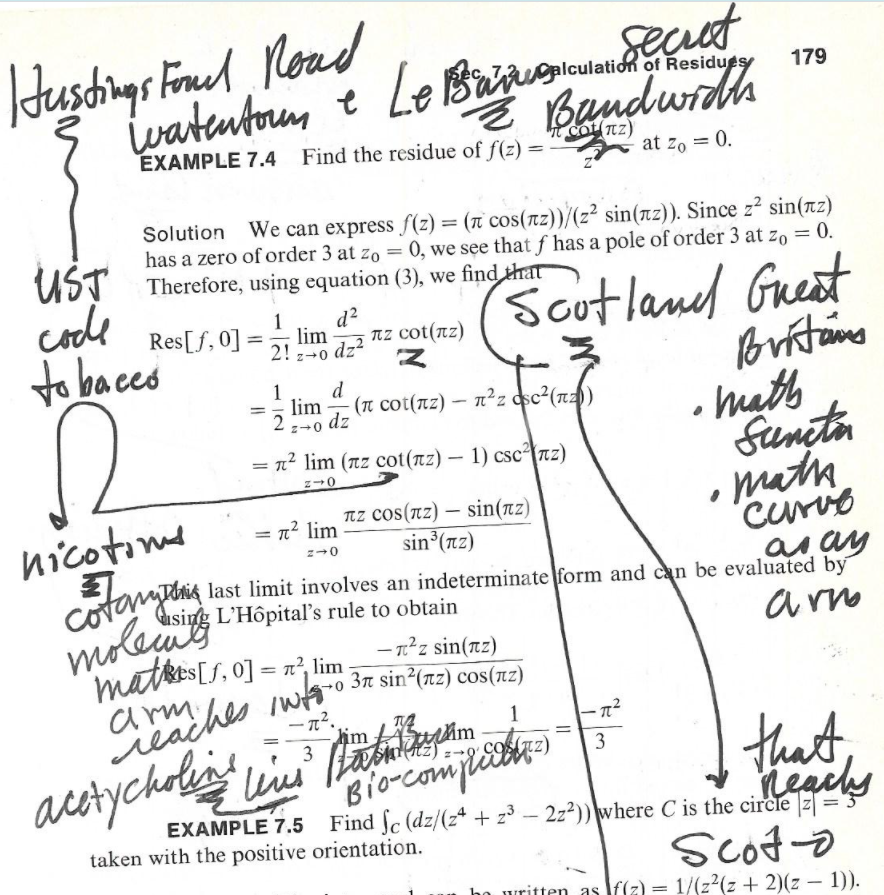 Hustings Ford Road
secret
Sec. 7.2 Calculation of Residues 179
Watertown e Le Baring Bandwidth
EXAMPLE 7.4 Find the residue of f(z) = π cot(πz)/z² at z₀ = 0.
Solution We can express f(z) = (π cos(πz))/(z² sin(πz)). Since z² sin(πz)
has a zero of order 3 at z₀ = 0, we see that f has a pole of order 3 at z₀ = 0.
Therefore, using equation (3), we find that
UST
code
tobacco
Scotland Great
Britain
Res[f, 0] = 1/2! lim z→0 d²/dz² πz cot(πz)
= 1/2 lim z→0 d/dz (π cot(πz) − π²z csc²(πz))
• math
• math
curve
as an
arm
= π² lim z→0 (πz cot(πz) − 1) csc²(πz)
= π² lim z→0 πz cos(πz) − sin(πz)/sin³(πz)
nicotine
This last limit involves an indeterminate form and can be evaluated by
using L'Hôpital's rule to obtain
molecule
math
arm
reaches into
acetycholine
Res[f, 0] = π² lim z→0 −π²z sin(πz)/3π sin²(πz) cos(πz)
= −π²/3 lim z→0 πz/sin(πz) lim z→0 1/cos(πz) = −π²/3
Bio-computer
that
reaches
Scot-o
EXAMPLE 7.5 Find ∫C (dz/(z⁴ + z³ − 2z²)) where C is the circle |z| = 3
taken with the positive orientation.
be written as f(z) = 1/(z²(z + 2)(z − 1)).